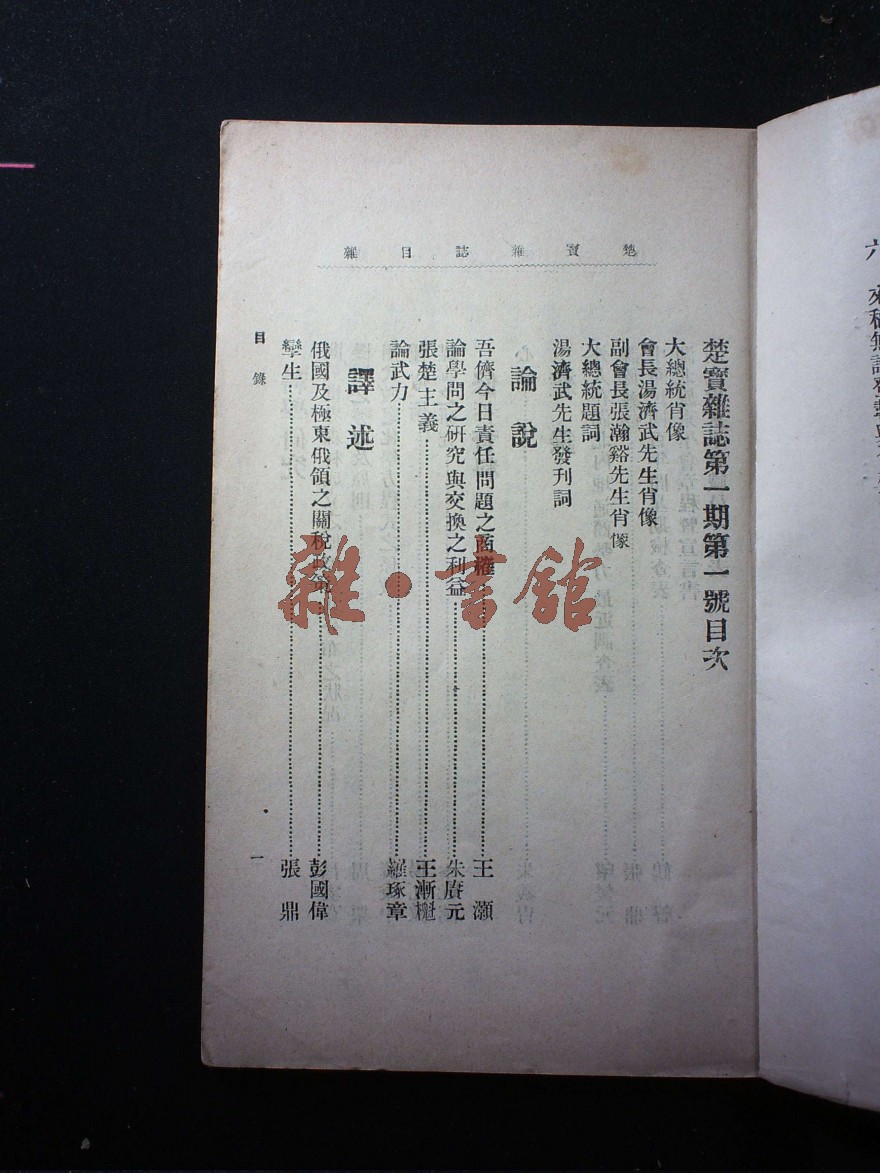 楚寶雜誌目雜
楚寶雜誌第一期第一號目次
大總統肖像
會長湯濟武先生肖像
副會長張瀚谿先生肖像
大總統題詞
湯濟武先生發刊詞
論說
吾儕今日責任問題之商榷 王灝
論學問之研究與交換之利益 朱賡元
張楚主義 王漸
論武力 羅琢章
譯述
俄國及極東俄領之關稅政策 彭國偉
孿生 張鼎
目錄
一
雜·書館